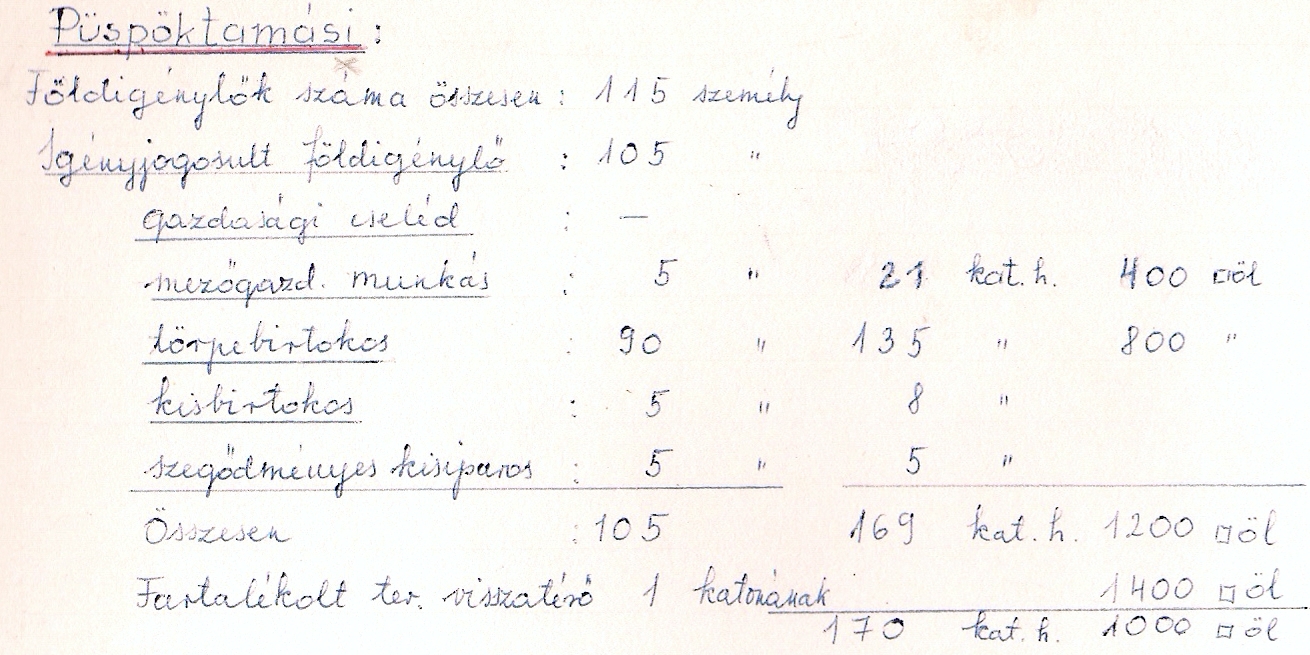 Püspöktamási :
Földigénylők száma összesen : 115 személy
Igényjogosult földigénylő : 105 "
gazdasági cseléd : —
mezőgazd. munkás : 5 " 21 kat. h. 400 □öl
törpebirtokos : 90 " 135 " 800 "
kisbirtokos : 5 " 8 "
szegődményes kisiparos : 5 " 5 "
Összesen : 105 169 kat. h. 1200 □öl
Tartalékolt ter. visszatérő 1 katonának 1400 □öl
170 kat. h. 1000 □öl